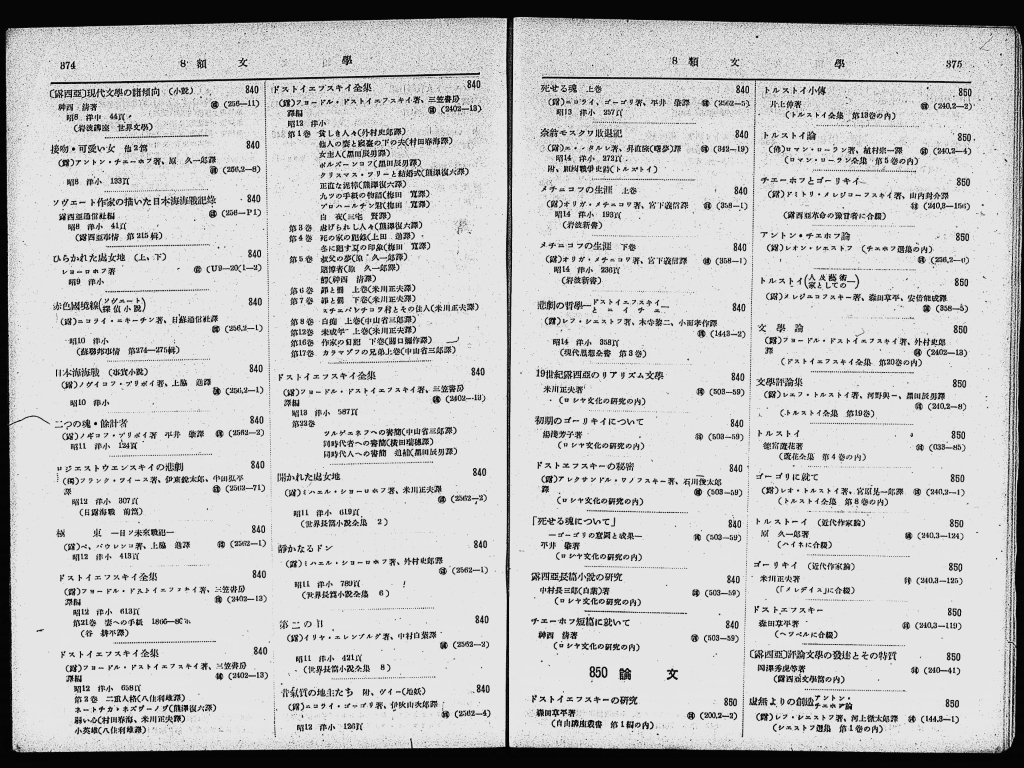 374
8類 文 學
〔露西亞〕現代文學の諸傾向 (小說) 840
神西 清著 (256—11)
昭8 洋中 44頁
(岩波講座 世界文學)
接吻・可愛い女 他2篇 840
(露)アントン・チエーホフ著、原 久一郎譯
(256,2—8)
昭8 洋小 133頁
ソヴエート作家の描いた日本海海戰記錄 840
露西亞通信社編 (256—P1)
昭8 洋小 41頁
(露西亞事情 第215輯)
ひらかれた處女地 (上、下) 840
ショーロホフ著 (U9—20(1—2)
昭9 洋小
赤色國境線(ソヴエート探偵小說) 840
(露)ニコライ・ニキーチン著、日蘇通信社譯
(256,2—1)
昭10 洋小
(蘇聯邦事情 第274—275輯)
日本海海戰 (事實小說) 840
(露)ノヴイコフ・プリボイ著、上脇 進譯
(256,2—1)
昭10 洋小
二つの魂・餘計者 840
(露)ノヰコフ・プリボイ著 平井 肇譯 (2562—2)
昭11 洋小 124頁
ロジエストウエンスキイの悲劇 840
(獨)フランク・テイース著、伊東鋭太郎、中田弘平譯
(2562—71)
昭12 洋小 307頁
(日露海戰 前篇)
極 東 —日ソ未來戰記— 840
(露)ペ、パウレンコ著、上脇 進譯 (2562—1)
昭12 洋小 413頁
ドストイエフスキイ全集 840
(露)フヨードル・ドストイエフスキイ著、三笠書房
譯編 (2402—13)
昭12 洋小 613頁
第21卷 妻への手紙 1866—80年
(谷 耕平譯)
ドストイエフスキイ全集 840
(露)フヨードル・ドストイエフスキイ著、三笠書房
譯編 (2402—13)
昭12 洋小 658頁
第2卷 二重人格(八住利雄譯)
ネートチカ・ネズワーノヷ(熊澤復六譯)
弱い心(村田春海、米川正夫譯)
小英雄(八住利雄譯)
ドストイエフスキイ全集 840
(露)フヨードル・ドストイエフスキイ著、三笠書房
譯編 (2402—13)
昭12 洋小
第1卷 貧しき人々(外村史郎譯)
他人の妻と寢臺の下の夫(村田春海譯)
女主人(黑田辰男譯)
ポルズーンコフ(黑田辰男譯)
クリスマス・ツリーと結婚式(熊澤復六譯)
正直な泥棒(熊澤復六譯)
九ツの手紙の物語(梅田 寬譯)
プロハールチン氏(梅田 寬譯)
白 夜(三宅 賢譯)
第3卷 虐げられし人々(熊澤復六譯)
第4卷 死の家の記錄(上田 進譯)
冬に誌す夏の印象(梅田 寬譯)
第5卷 叔父の夢(原 久一郎譯)
賭博者(原 久一郎譯)
鰐(神西 清譯)
第6卷 罪と罰 上卷(米川正夫譯)
第7卷 罪と罰 下卷(米川正夫譯)
ステパンチコワ村とその住人(米川正夫譯)
第8卷 白痴 上卷(中山省三郎譯)
第12卷 未成年 上卷(米川正夫譯)
第16卷 作家の日記 下卷(關口彌作譯)
第17卷 カラマゾフの兄弟上卷(中山省三郎譯)
ドストイエフスキイ全集 840
(露)フヨードル・ドストイエフスキイ著、三笠書房
譯編 (2402—13)
昭13 洋小 587頁
第23卷
ツルゲエネフへの書簡(中山省三郎譯)
同時代者への書簡(横田瑞穗譯)
同時代人への書簡 追補(黑田辰男譯)
開かれた處女地 840
(露)ミハエル・ショーロホフ著、米川正夫譯
(2562—2)
昭11 洋小 619頁
(世界長篇小說全集 2)
靜かなるドン 840
(露)ミハエル・ショーロホフ著、外村史郎譯
(2562—1)
昭11 洋小 789頁
(世界長篇小說全集 6)
第二の日 840
(露)イリヤ・エレンブルグ著、中村白葉譯
(2562—2)
昭11 洋小 421頁
(世界長篇小說全集 8)
昔氣質の地主たち 附、ヴイー(地妖) 840
(露)ニコライ・ゴーゴリ著、伊吹山次郎譯
(2562—4)
昭12 洋小 126頁
8類 文 學
375
死せる魂 上卷 840
(露)ニコライ、ゴーゴリ著、平井 肇譯 (2562—5)
昭13 洋小 257頁
奈翁モスクワ敗退記 840
(露)エ・タルレ著、昇直隆(曙夢)譯 (342—19)
昭14 洋小 272頁
附、祖國戰爭史話(トルストイ)
メチニコフの生涯 上卷 840
(露)オリガ・メチニコワ著、宮下義信譯 (358—1)
昭14 洋小 193頁
(岩波新書)
メチニコフの生涯 下卷 840
(露)オリガ・メチニコワ著、宮下義信譯 (358—1)
昭14 洋小 236頁
(岩波新書)
悲劇の哲學—ドストイエフスキイとニイチエ— 840
(露)レフ・シエストフ著、木寺黎二、小西孝作譯
(1443—2)
昭14 洋小 358頁
(現代思想全書 第3卷)
19世紀露西亞のリアリズム文學 840
米川正夫著 (503—59)
(ロシヤ文化の研究の内)
初期のゴーリキイについて 840
湯淺芳子著 (503—59)
(ロシヤ文化の研究の内)
ドストエフスキーの秘密 840
(露)アレクサンドル・ワノフスキー著、石川俊太郎
譯 (503—59)
(ロシヤ文化の研究の内)
「死せる魂について」 840
—ゴーゴリの意圖と成果— (503—59)
平井 肇著
(ロシヤ文化の研究の内)
露西亞長篇小說の研究 840
中村長三郎(白葉)著 (503—59)
(ロシヤ文化の研究の内)
チエーホフ短篇に就いて 840
神西 清著 (503—59)
(ロシヤ文化の研究の内)
850 論 文
ドストエフスキーの研究 850
森田草平著 (200,2—2)
(自由講座叢書 第1編の内)
トルストイ小傳 850
片上伸著 (240,2—2)
(トルストイ全集 第13卷の内)
トルストイ論 850
(佛)ロマン・ローラン著、植村宗一譯 (240,2—4)
(ロマン・ローラン全集 第5卷の内)
チエーホフとゴーリキイ 850
(露)ドミトリ・メレジコーフスキイ著、山内封介譯
(240,3—156)
(露西亞革命の豫言者に合綴)
アントン・チエホフ論 850
(露)レオン・シエストフ (チエホフ選集の内)
(256,2—0)
トルストイ(人及藝術家としての—) 850
(露)メレジュコフスキー著、森田草平、安倍能成譯
(358—5)
文 學 論 850
(露)フヨードル・ドストイエフスキイ著、外村史郎
譯 (2402—13)
(ドストイエフスキイ全集 第20卷の内)
文學評論集 850
(露)レエフ・トルストイ著、河野與一、黑田辰男譯
(240,2—8)
(トルストイ全集 第19卷)
トルストイ 850
德富蘆花著 (033—85)
(蘆花全集 第4卷の内)
ゴーゴリに就て 850
(露)レオ・トルストイ著、宮原晃一郎譯 (240,2—1)
(トルストイ全集 第8卷の内)
トルストーイ (近代作家論) 850
原 久一郎著 (240,3—124)
(ハイネに合綴)
ゴーリキイ (近代作家論) 850
米川正夫著 (240,3—125)
(「メレデイス」に合綴)
ドストエフスキー 850
森田草平著 (240,3—119)
(ヘツベルに合綴)
〔露西亞〕評論文學の發達とその特質 850
岡澤秀虎等著 (240—41)
(露西亞文學篇の内)
虛無よりの創造 アントン・チエホフ論 850
(露)レフ・シエストフ著、河上徹太郎譯 (144,3—1)
(シエストフ選集 第1卷の内)